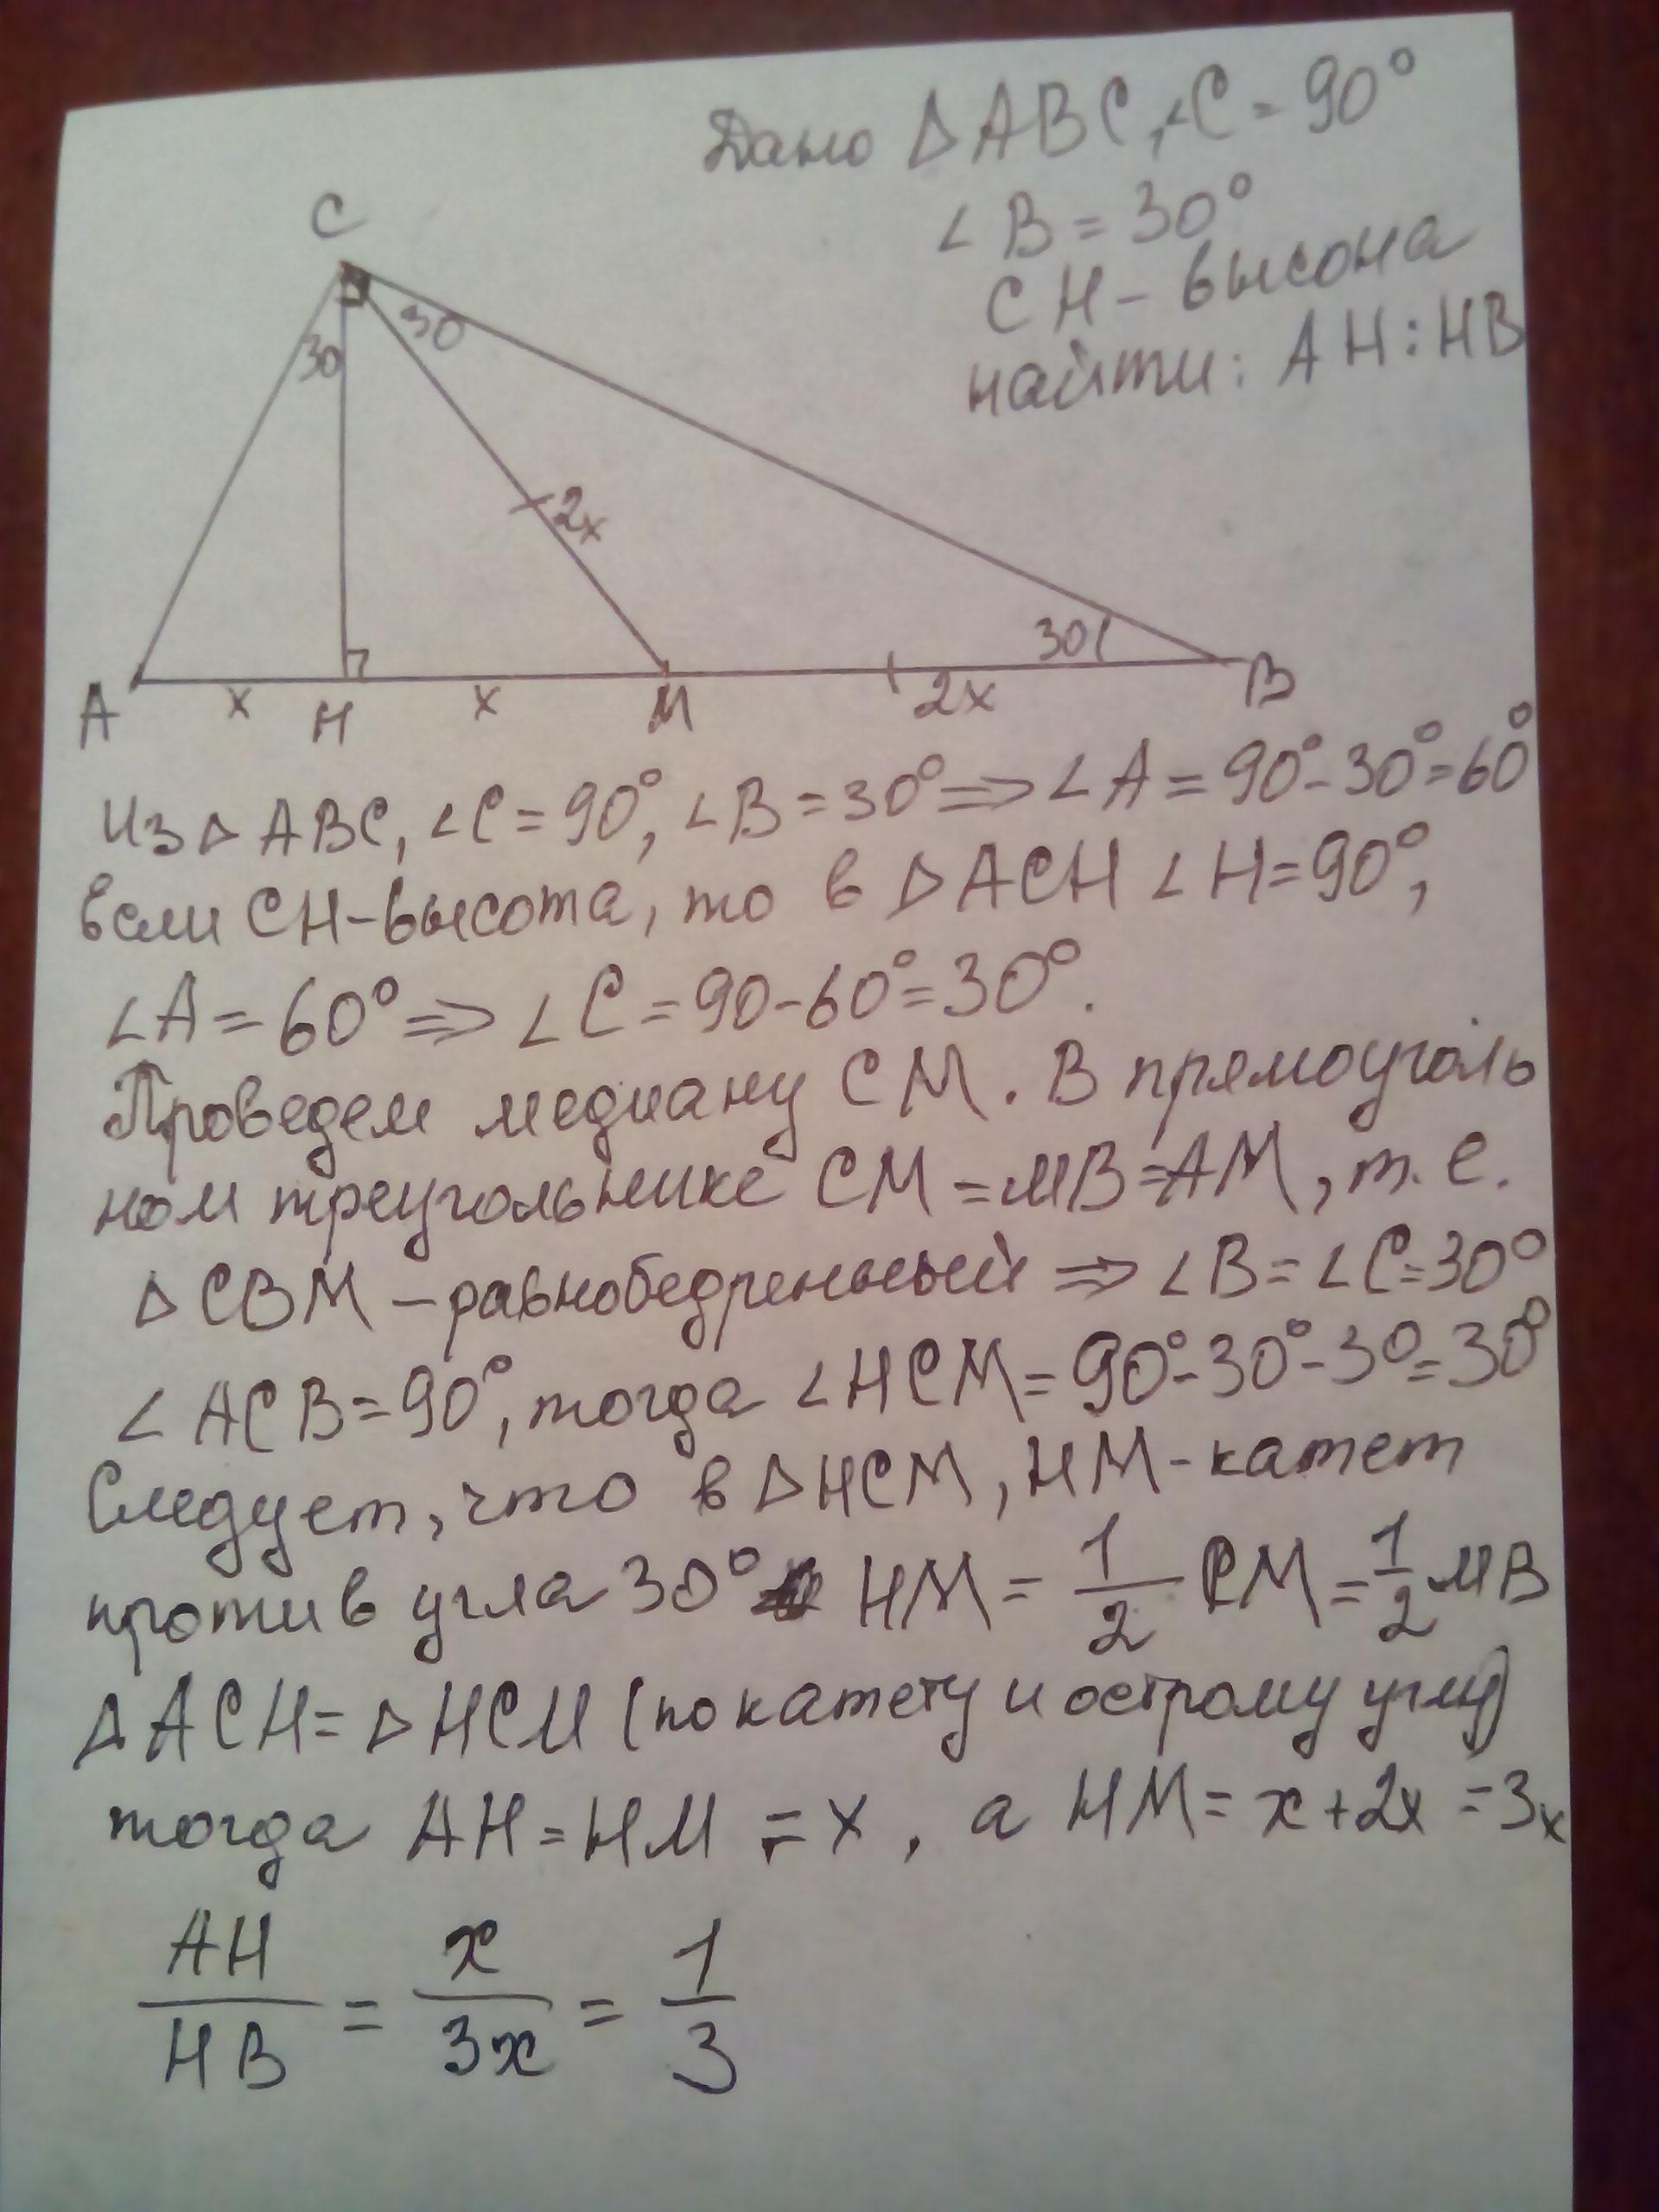 Дано △ABC, ∠C = 90°
∠B = 30°
CH – высона
найти: AH : HB
C
30
30
2x
30
A
x
H
x
M
2x
B
Из △ABC, ∠C = 90°, ∠B = 30° ⇒ ∠A = 90° - 30° = 60°
если CH – высота, то в △ACH ∠H = 90°,
∠A = 60° ⇒ ∠C = 90 - 60° = 30°.
Проведем медиану CM. В прямоуголь
ном треугольнике CM = MB = AM, т. е.
△CBM – равнобедренный ⇒ ∠B = ∠C = 30°
∠ACB = 90°, тогда ∠HCM = 90° - 30° - 30 = 30°
Следует, что в △HCM, HM - катет
против угла 30° HM = 1/2 CM = 1/2 MB
△ACH = △HCM (по катету и острому углу)
тогда AH = HM = x, а HM = x + 2x = 3x
AH/HB = x/3x = 1/3